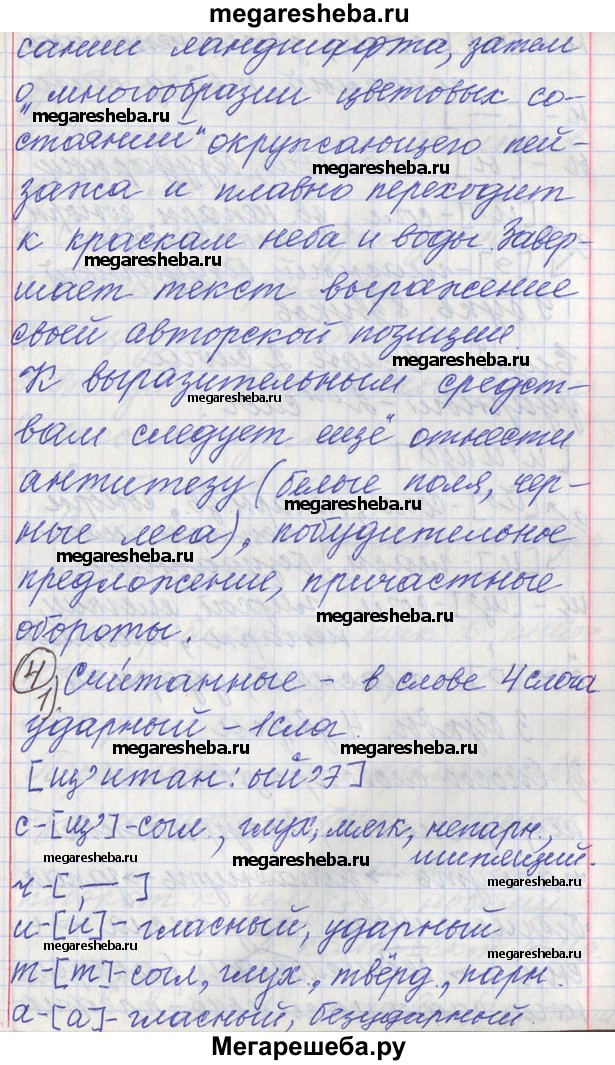 megaresheba.ru
сании ландшафта, затем
о „многообразии цветовых со-
megaresheba.ru
megaresheba.ru
стояний“ окружающего пей-
megaresheba.ru
зажа и плавно переходит
к краскам неба и воды. Завер-
megaresheba.ru
megaresheba.ru
шает текст выражение
своей авторской позиции
megaresheba.ru
К выразительным средст-
megaresheba.ru
megaresheba.ru
вам следует ещё отнести
антитезу (белые поля, чер-
megaresheba.ru
ные леса), побудительное
megaresheba.ru
megaresheba.ru
предложение, причастные
megaresheba.ru
обороты.
4 1) Считанные - в слове 4 слога
ударный - 1 слог.
megaresheba.ru
megaresheba.ru
[щ’итан:ый’э]
с-[щ’]-согл., глух., мягк., непарн.,
megaresheba.ru
megaresheba.ru
шипящий.
ч-[ — ]
и-[и]-гласный, ударный
megaresheba.ru
megaresheba.ru
т-[т]-согл., глух., твёрд., парн.
megaresheba.ru
а-[а]-гласный, безударный.
Мегарешеба.ру